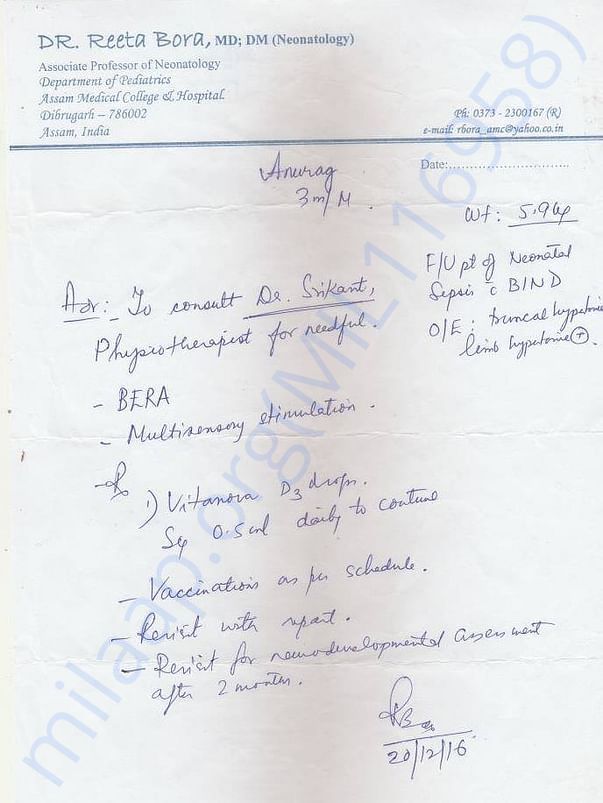 DR. Reeta Bora, MD; DM (Neonatology)
Associate Professor of Neonatology
Department of Pediatrics
Assam Medical College & Hospital
Dibrugarh – 786002
Assam, India
Ph: 0373 - 2300167 (R)
e-mail: rbora_amc@yahoo.co.in
Date:..............................
Anurag
3m/M.
Wt: 5.9kg
F/U pt of Neonatal
Sepsis c BIND
O/E: truncal hypotonia
limb hypotonia (+).
Adv:- To consult Dr. Srikant,
Physiotherapist for needful.
- BERA
- Multisensory stimulation.
- Rx
1) Vitanova D3 drops.
Sig 0.5ml daily to continue
- Vaccinations as per schedule.
- Revisit with report.
- Revisit for neurodevelopmental assessment
after 2 months.
20/12/16
milaap.org(MIL116958)